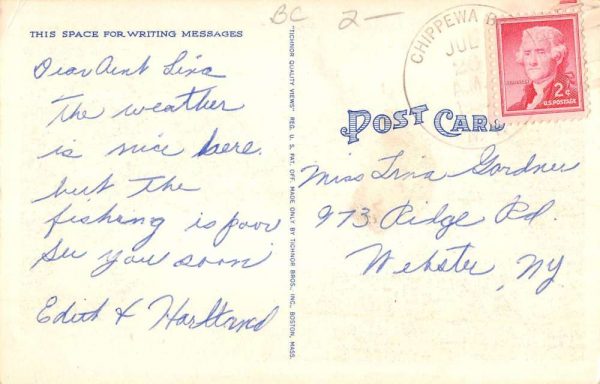 BC 2—
THIS SPACE FOR WRITING MESSAGES
Dear Aint Lina
The weather
is nice here.
but the
fishing is poor
See you soon
Edith & Hartland
"TICHNOR QUALITY VIEWS" REG. U. S. PAT. OFF. MADE ONLY BY TICHNOR BROS., INC., BOSTON, MASS.
CHIPPEWA
JUL
2¢
U.S. POSTAGE
POST CARD
Miss Lina Gardner
973 Ridge Rd.
Webster, NY.